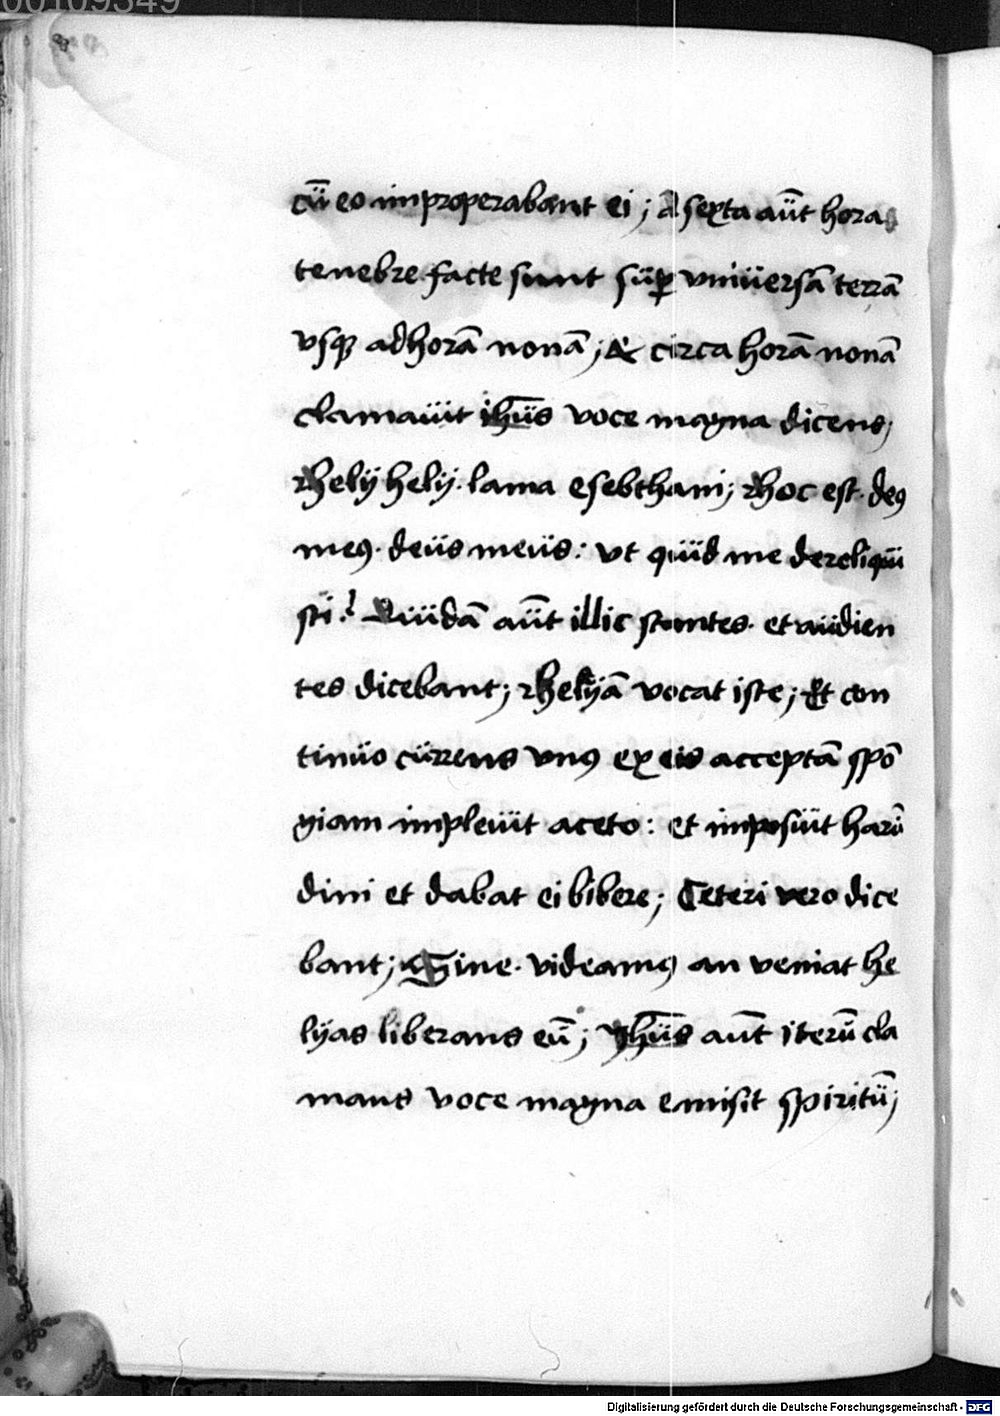 00109349
cū eo improperabant ei; A sexta aūt hora
tenebre facte sunt sup vniuersā terrā
vsqꝫ ad horā nonā; & circa horā nonā
clamauit ihūs voce magna dicens;
Rhely hely. lama esebthani; Rhoc est. deꝰ
meꝰ. deus meus: vt quid me dereliqui
sti? Quidā aūt illic stantes. et audien
tes dicebant; Rhelyā vocat iste; Et con
tinuo currens vnꝰ ex eis acceptā spō
giam impleuit aceto: et imposuit harū
dini et dabat ei bibere; Ceteri vero dice
bant; Sine. videamꝰ an veniat he
lyas liberans eū; yhūs aūt iterū cla
mans voce magna emisit spiritū;
Digitalisierung gefördert durch die Deutsche Forschungsgemeinschaft - DFG